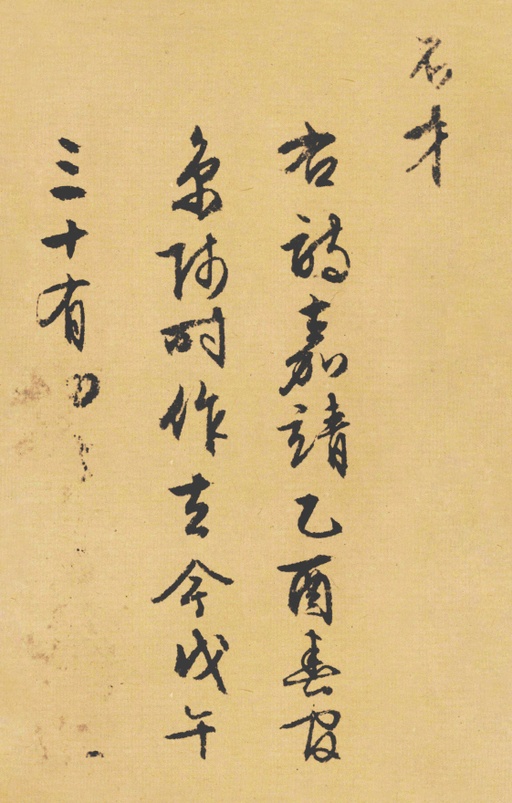 不才
右詩嘉靖乙酉春官
京師時作去今戊午
三十有